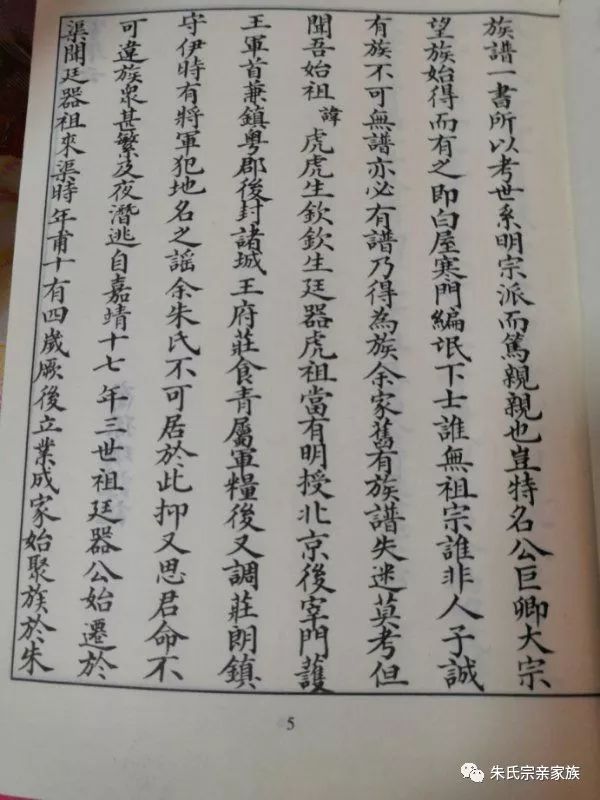 族譜一書所以考世系明宗派而篤親親也豈特名公巨卿大宗
望族始得而有之即白屋寒門編氓下士誰無祖宗誰非人子誠
有族不可無譜亦必有譜乃得為族余家舊有族譜失迷莫考但
聞吾始祖諱虎虎生欽欽生廷器虎祖當有明授北京後宰門護
王軍首兼鎮粵郡後封諸城王府莊食青屬軍糧後又調莊朗鎮
守伊時有將軍犯地名之謡余朱氏不可居於此抑又思君命不
可違族衆甚繁及夜潛逃自嘉靖十七年三世祖廷器公始遷於
渠聞廷器祖來渠時年甫十有四歲厥後立業成家始聚族於朱
5
朱氏宗亲家族